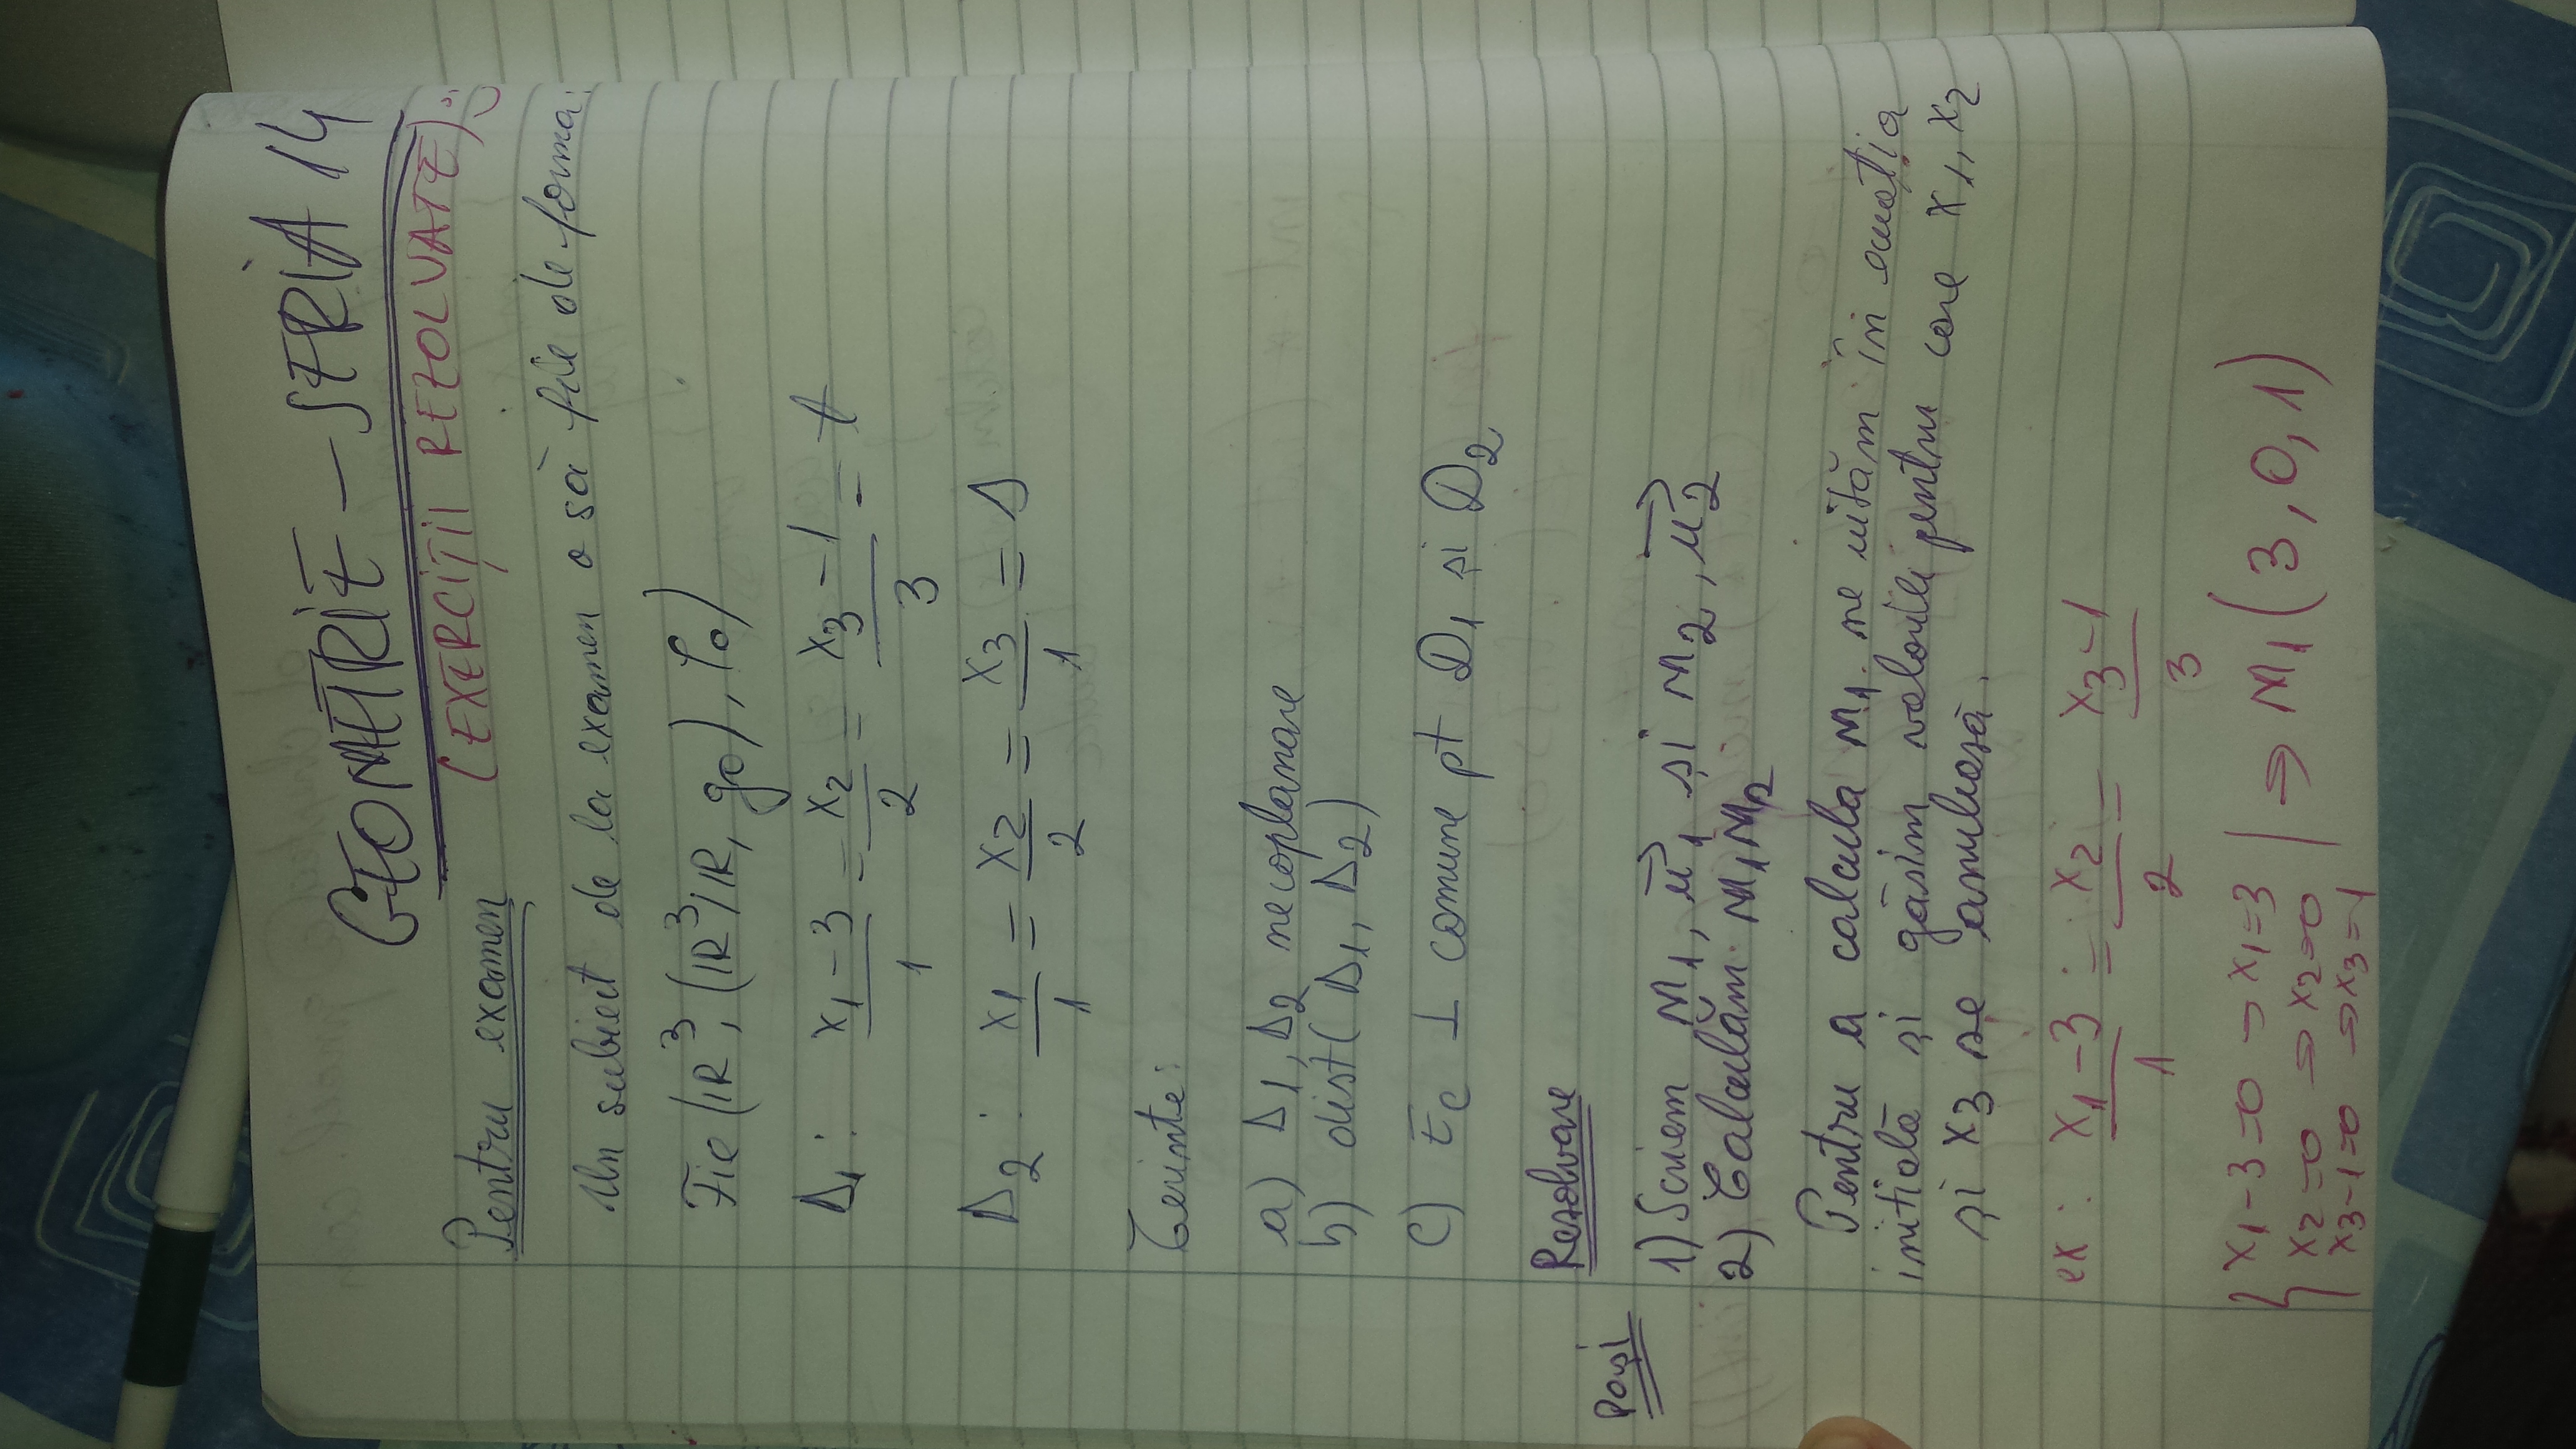 GEOMETRIE – SERIA 14
(EXERCIȚII REZOLVATE) :)
Pentru examen
Un subiect de la examen o să fie de forma:
Fie (ℝ³, (ℝ³/ℝ, g₀), φ₀)
Δ₁: (x₁-3)/1 = x₂/2 = (x₃-1)/3 = t
Δ₂: x₁/1 = x₂/2 = x₃/1 = s
Cerinte:
a) Δ₁, Δ₂ necoplanare
b) dist(Δ₁, Δ₂)
c) Ec ⊥ comune pt D₁ și D₂
Rezolvare
Pași
1) Scriem M₁, u⃗₁ și M₂, u⃗₂
2) Calculăm M₁M₂
Pentru a calcula M₁ ne uităm în ecuația
initială și găsim valorile pentru care x₁, x₂
și x₃ se anulează.
ex: (x₁-3)/1 = x₂/2 = (x₃-1)/3
{ x₁-3=0 → x₁=3
x₂=0 → x₂=0 | ⇒ M₁(3,0,1)
x₃-1=0 → x₃=1